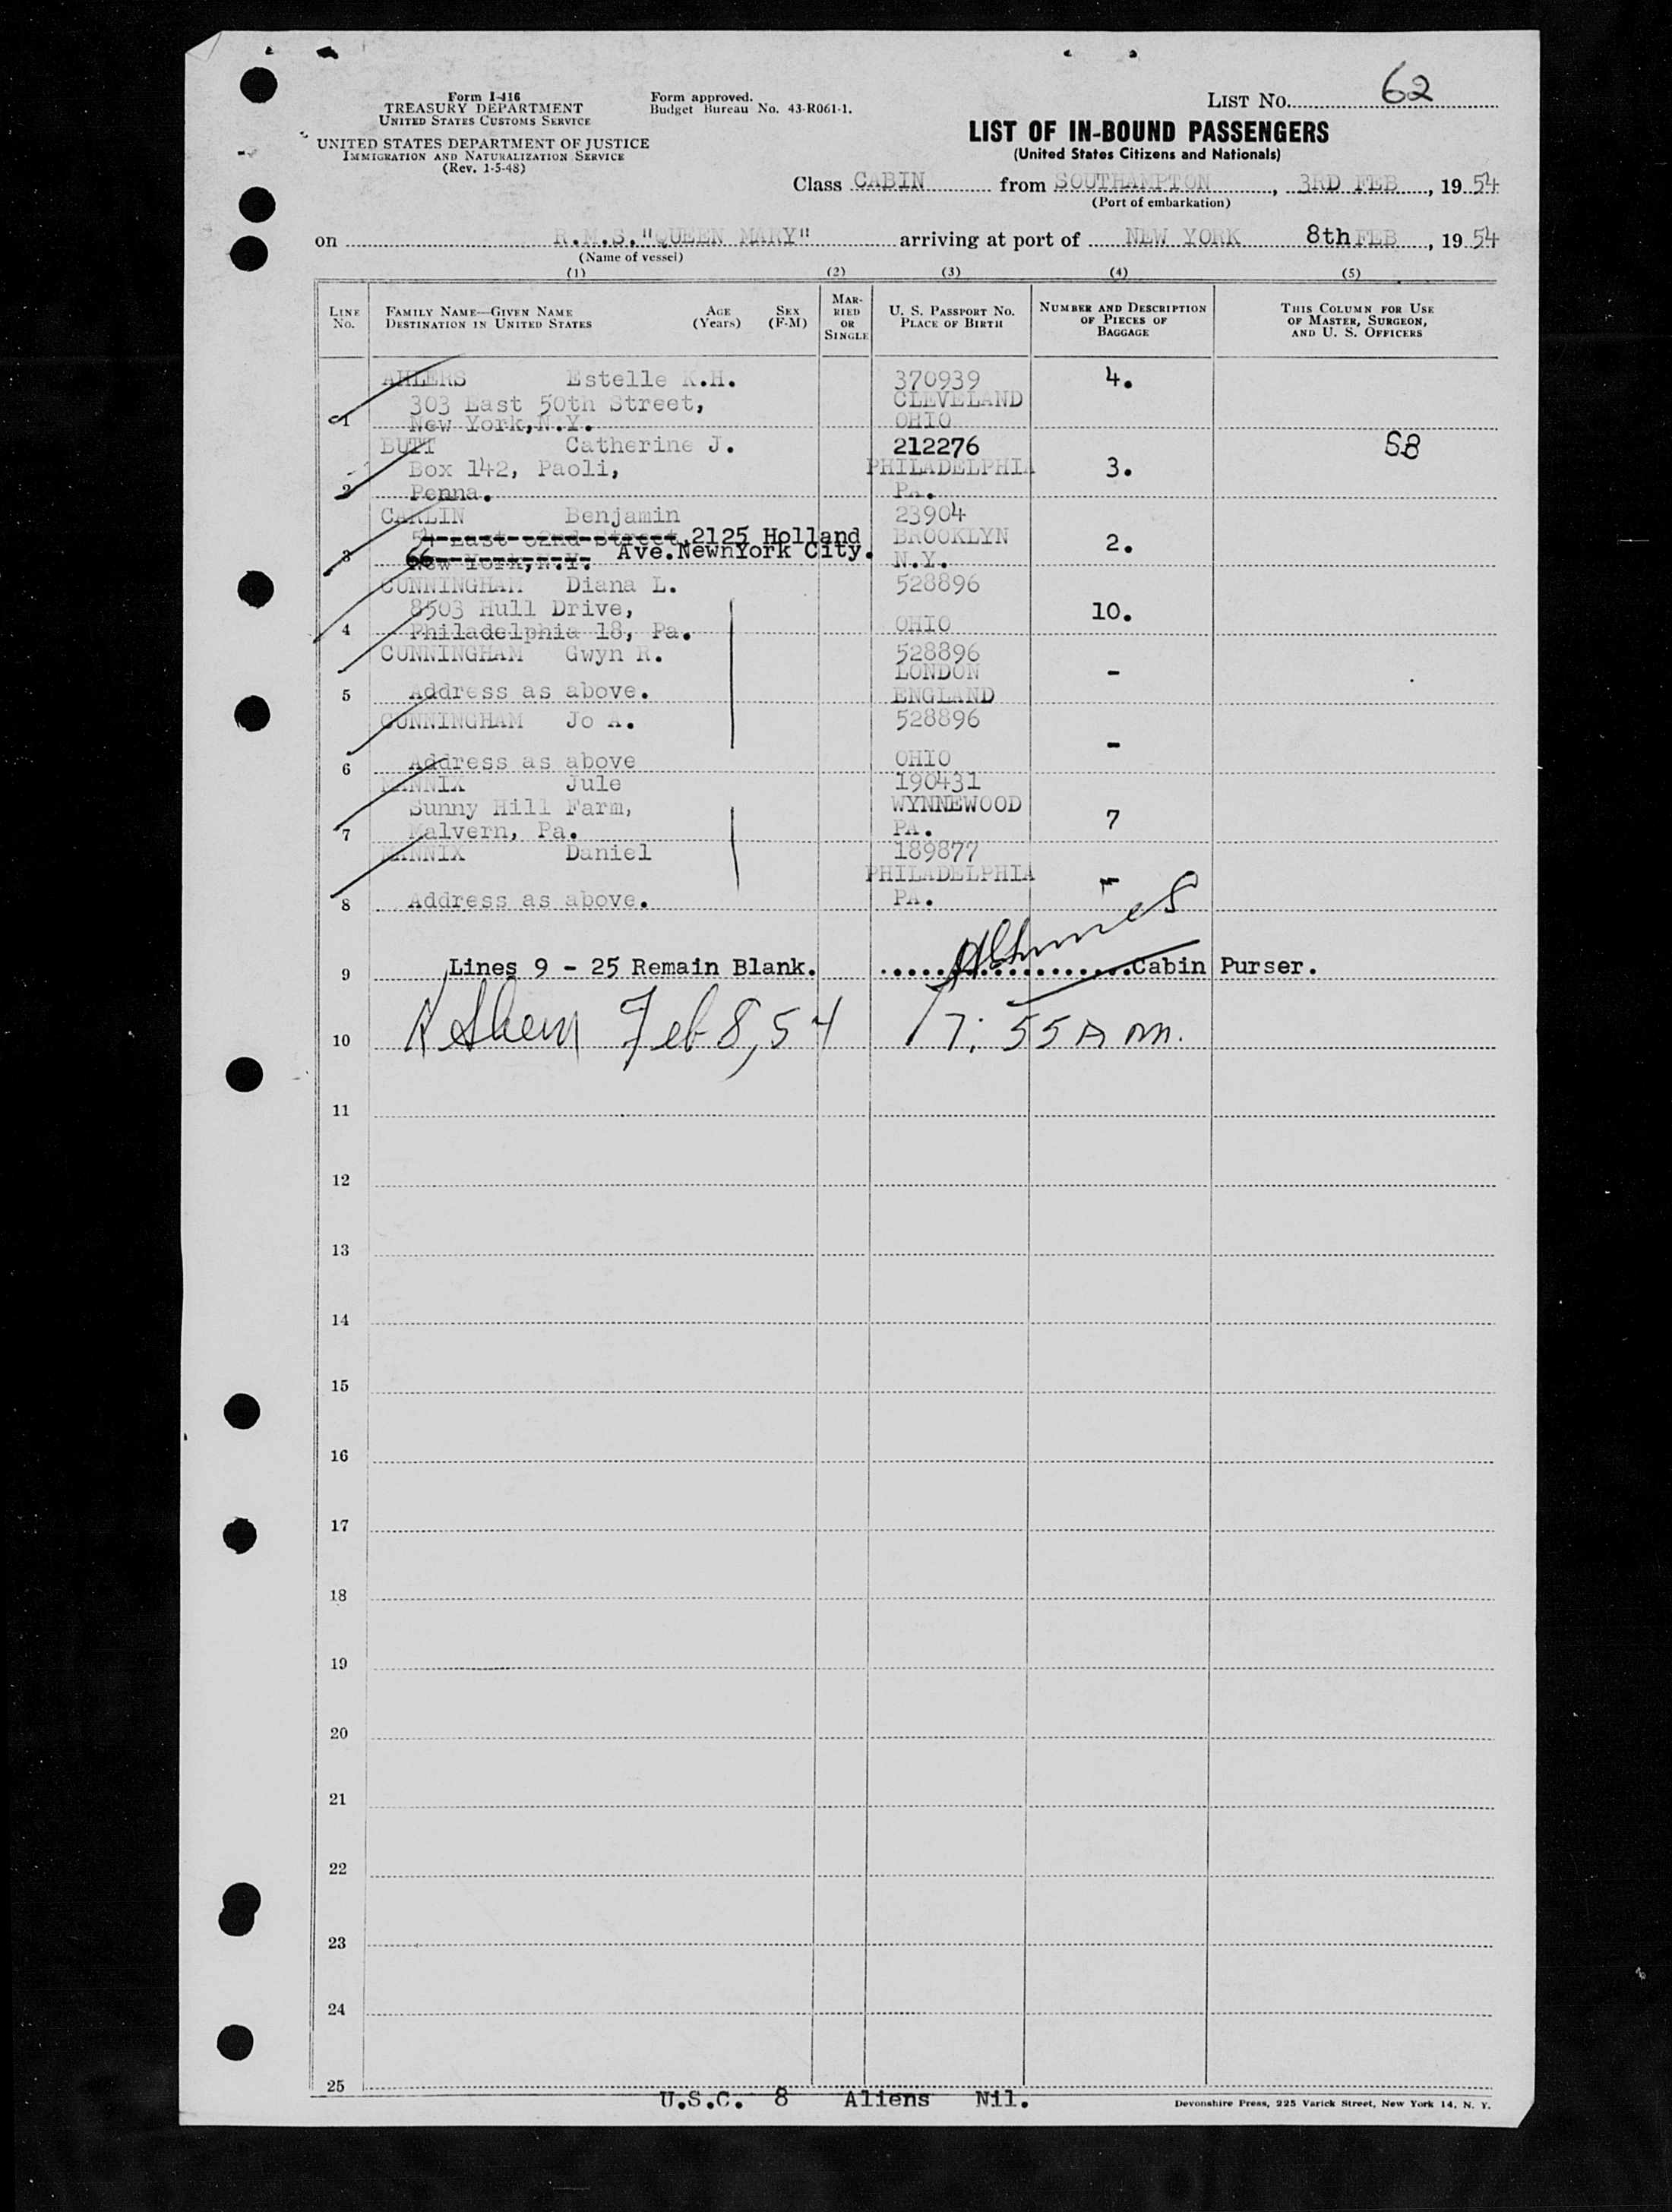 Form I-416
TREASURY DEPARTMENT
UNITED STATES CUSTOMS SERVICE
UNITED STATES DEPARTMENT OF JUSTICE
IMMIGRATION AND NATURALIZATION SERVICE
(Rev. 1-5-48)
Form approved.
Budget Bureau No. 43-R061-1.
LIST NO. 62
LIST OF IN-BOUND PASSENGERS
(United States Citizens and Nationals)
Class CABIN from SOUTHAMPTON, 3RD FEB, 1954
(Port of embarkation)
on R.M.S."QUEEN MARY" arriving at port of NEW YORK 8th FEB, 1954
(Name of vessel)
(1) (2) (3) (4) (5)
LINE NO.
FAMILY NAME—GIVEN NAME
DESTINATION IN UNITED STATES
AGE (Years)
SEX (F-M)
MARRIED OR SINGLE
U. S. PASSPORT NO.
PLACE OF BIRTH
NUMBER AND DESCRIPTION OF PIECES OF BAGGAGE
THIS COLUMN FOR USE OF MASTER, SURGEON, AND U. S. OFFICERS
AHLERS Estelle K.H. 370939 4.
303 East 50th Street, CLEVELAND
1 New York,N.Y. OHIO
BUTT Catherine J. 212276 SB
Box 142, Paoli, PHILADELPHIA 3.
2 Penna. PA.
CARLIN Benjamin 23904
54 East 82nd Street,2125 Holland BROOKLYN 2.
3 66 New York,N.Y. Ave.NewnYork City. N.Y.
CUNNINGHAM Diana L. 528896
8503 Hull Drive, 10.
4 Philadelphia 18, Pa. OHIO
CUNNINGHAM Gwyn R. 528896
LONDON -
5 Address as above. ENGLAND
CUNNINGHAM Jo A. 528896
-
6 Address as above OHIO
MANNIX Jule 190431
Sunny Hill Farm, WYNNEWOOD 7
7 Malvern, Pa. PA.
MANNIX Daniel 189877
PHILADELPHIA -
8 Address as above. PA.
9 Lines 9 - 25 Remain Blank. ....................Cabin Purser.
10 Feb 8, 54 7:55 A m.
11
12
13
14
15
16
17
18
19
20
21
22
23
24
25
U.S.C. 8 Aliens Nil.
Devonshire Press, 225 Varick Street, New York 14, N. Y.